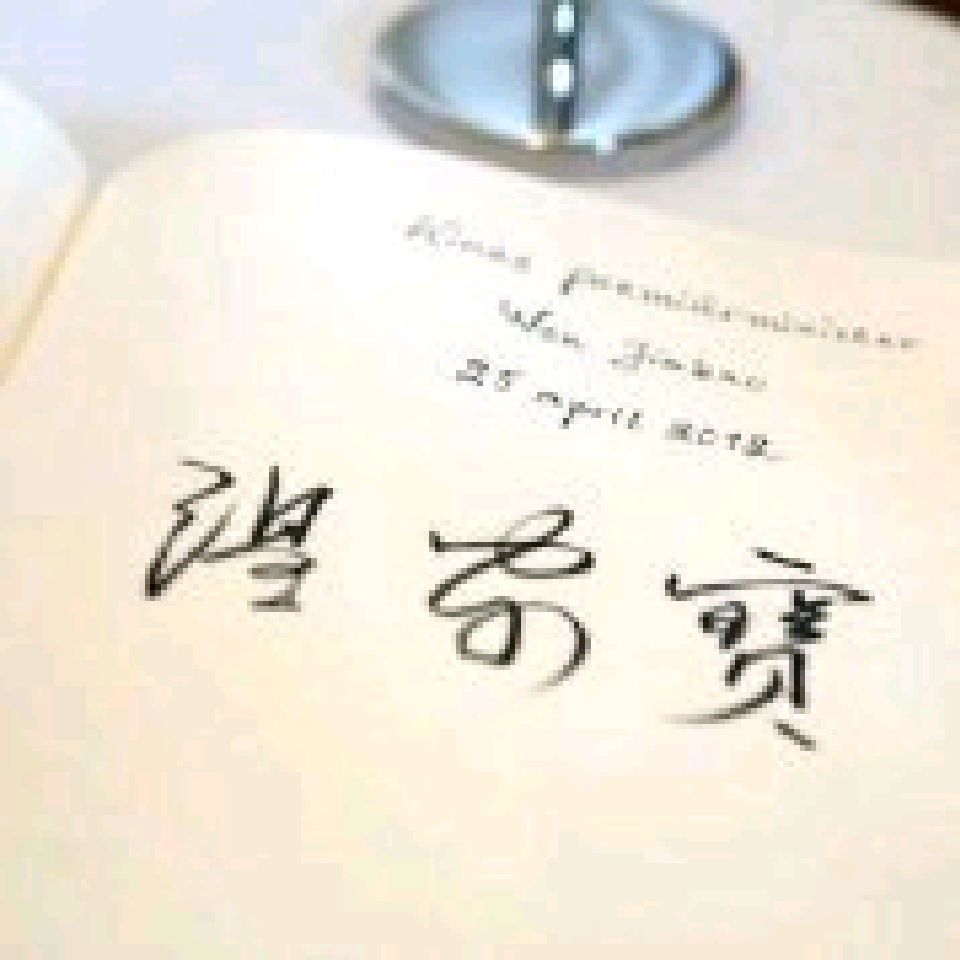 Kinas premiärminister
Wen Jiabao
25 april 2012
温家寶